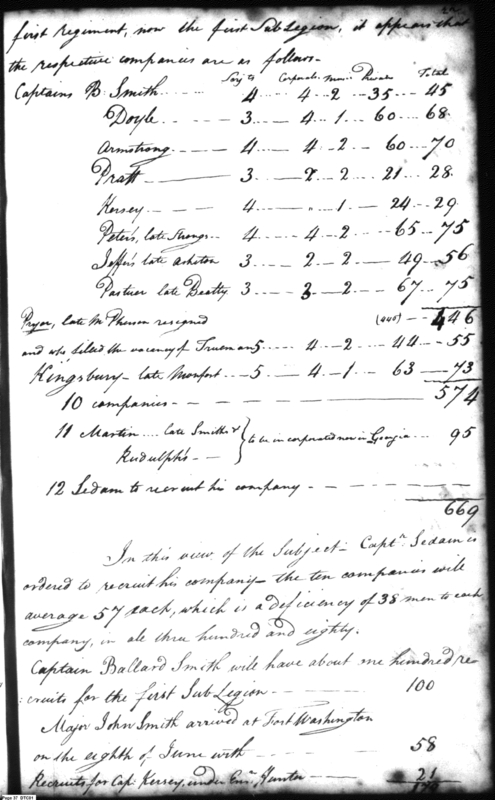 first Regiment, now the first Sub Legion, it appears that
the respective companies are as follows-
Serj.ts Corporals Music Privates Total
Captains B. Smith 4 4 2 35 45
Doyle 3 4 1 60 68
Armstrong 4 4 2 60 70
Pratt 3 2 2 21 28
Kersey 4 " 1 24 29
Peters, late Strongs 4 4 2 65 75
Jeffers late Ashton 3 2 2 49 56
Pastuer late Beatty 3 3 2 67 75
Pryor, late McPherson resigned 446
and who filled the vacancy of Trueman 5 4 2 44 55
Kingsbury late Monfort 5 4 1 63 73
10 companies 574
11 Martin late Smiths &
Rudulph's } to be incorporated now in Georgia 95
12 Sedam to recruit his company
669
In this view of the Subject- Capt.n Sedam is
ordered to recruit his company- the ten companies will
average 57 each, which is a deficiency of 38 men to each
company, in all three hundred and eighty.
Captain Ballard Smith will have about one hundred re-
cruits for the first Sub Legion 100
Major John Smith arrived at Fort Washington
on the eighth of June with 58
Recruits for Cap. Kersey, under Ens. Hunter 21
179
Page 37